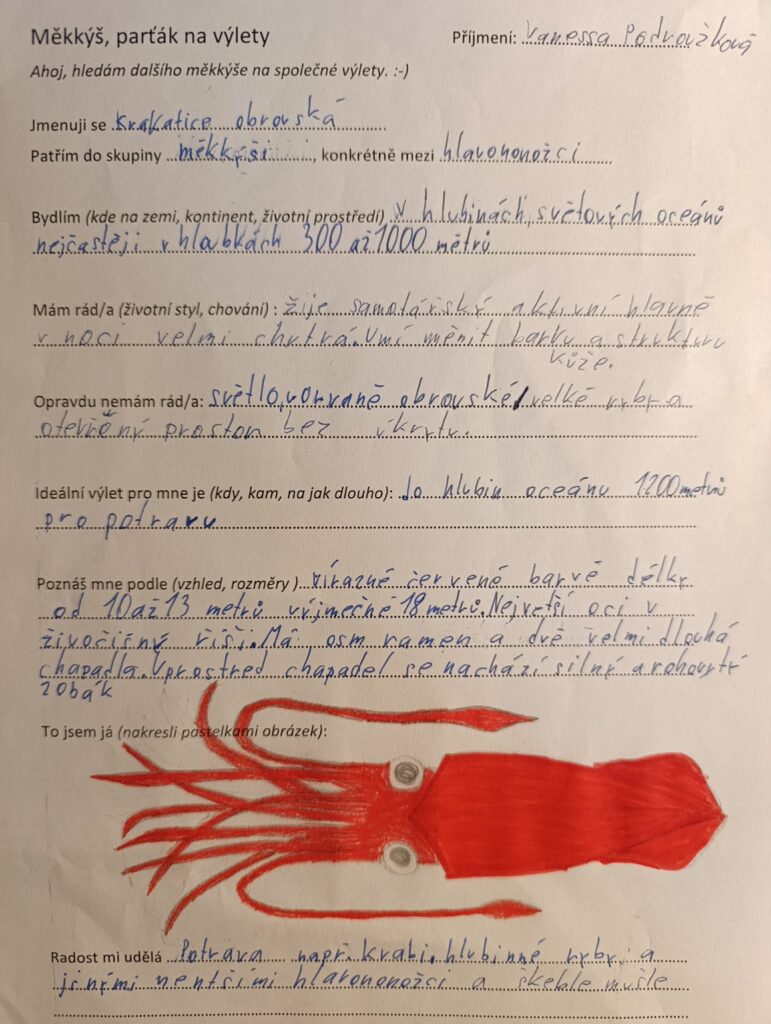 Měkkýš, parťák na výlety
Příjmení: Vanessa Podroužková
Ahoj, hledám dalšího měkkýše na společné výlety. :-)
Jmenuji se krakatice obrovská
Patřím do skupiny měkkýši, konkrétně mezi hlavononožci
Bydlím (kde na zemi, kontinent, životní prostředí) v hlubinách, světových oceánů
nejčastěji v hloubkách 300 až 1000 métrů
Mám rád/a (životní styl, chování) : žije samotářský aktivní hlavně
v noci velmi chytrá. Umí měnit barvu a strukturu
kůže.
Opravdu nemám rád/a: světlo, vorvaně obrovské, velké ryby a
otevřený prostor bez úkrytu.
Ideální výlet pro mne je (kdy, kam, na jak dlouho): do hlubin oceánu 1200 metrů
pro potravu
Poznáš mne podle (vzhled, rozměry ) výrazné červené barvě délky
od 10 až 13 metrů výjmečně 18 metrů. Největší oci v
živočišný říši. Má osm ramen a dvě velmi dlouhá
chapadla. Uprostřed chapadel se nachází silný a rohovytý
zobák
To jsem já (nakresli pastelkami obrázek):
Radost mi udělá Potrava např. krabi, hlubinné ryby, a
jinými menšími hlavononožci a škeble mušle